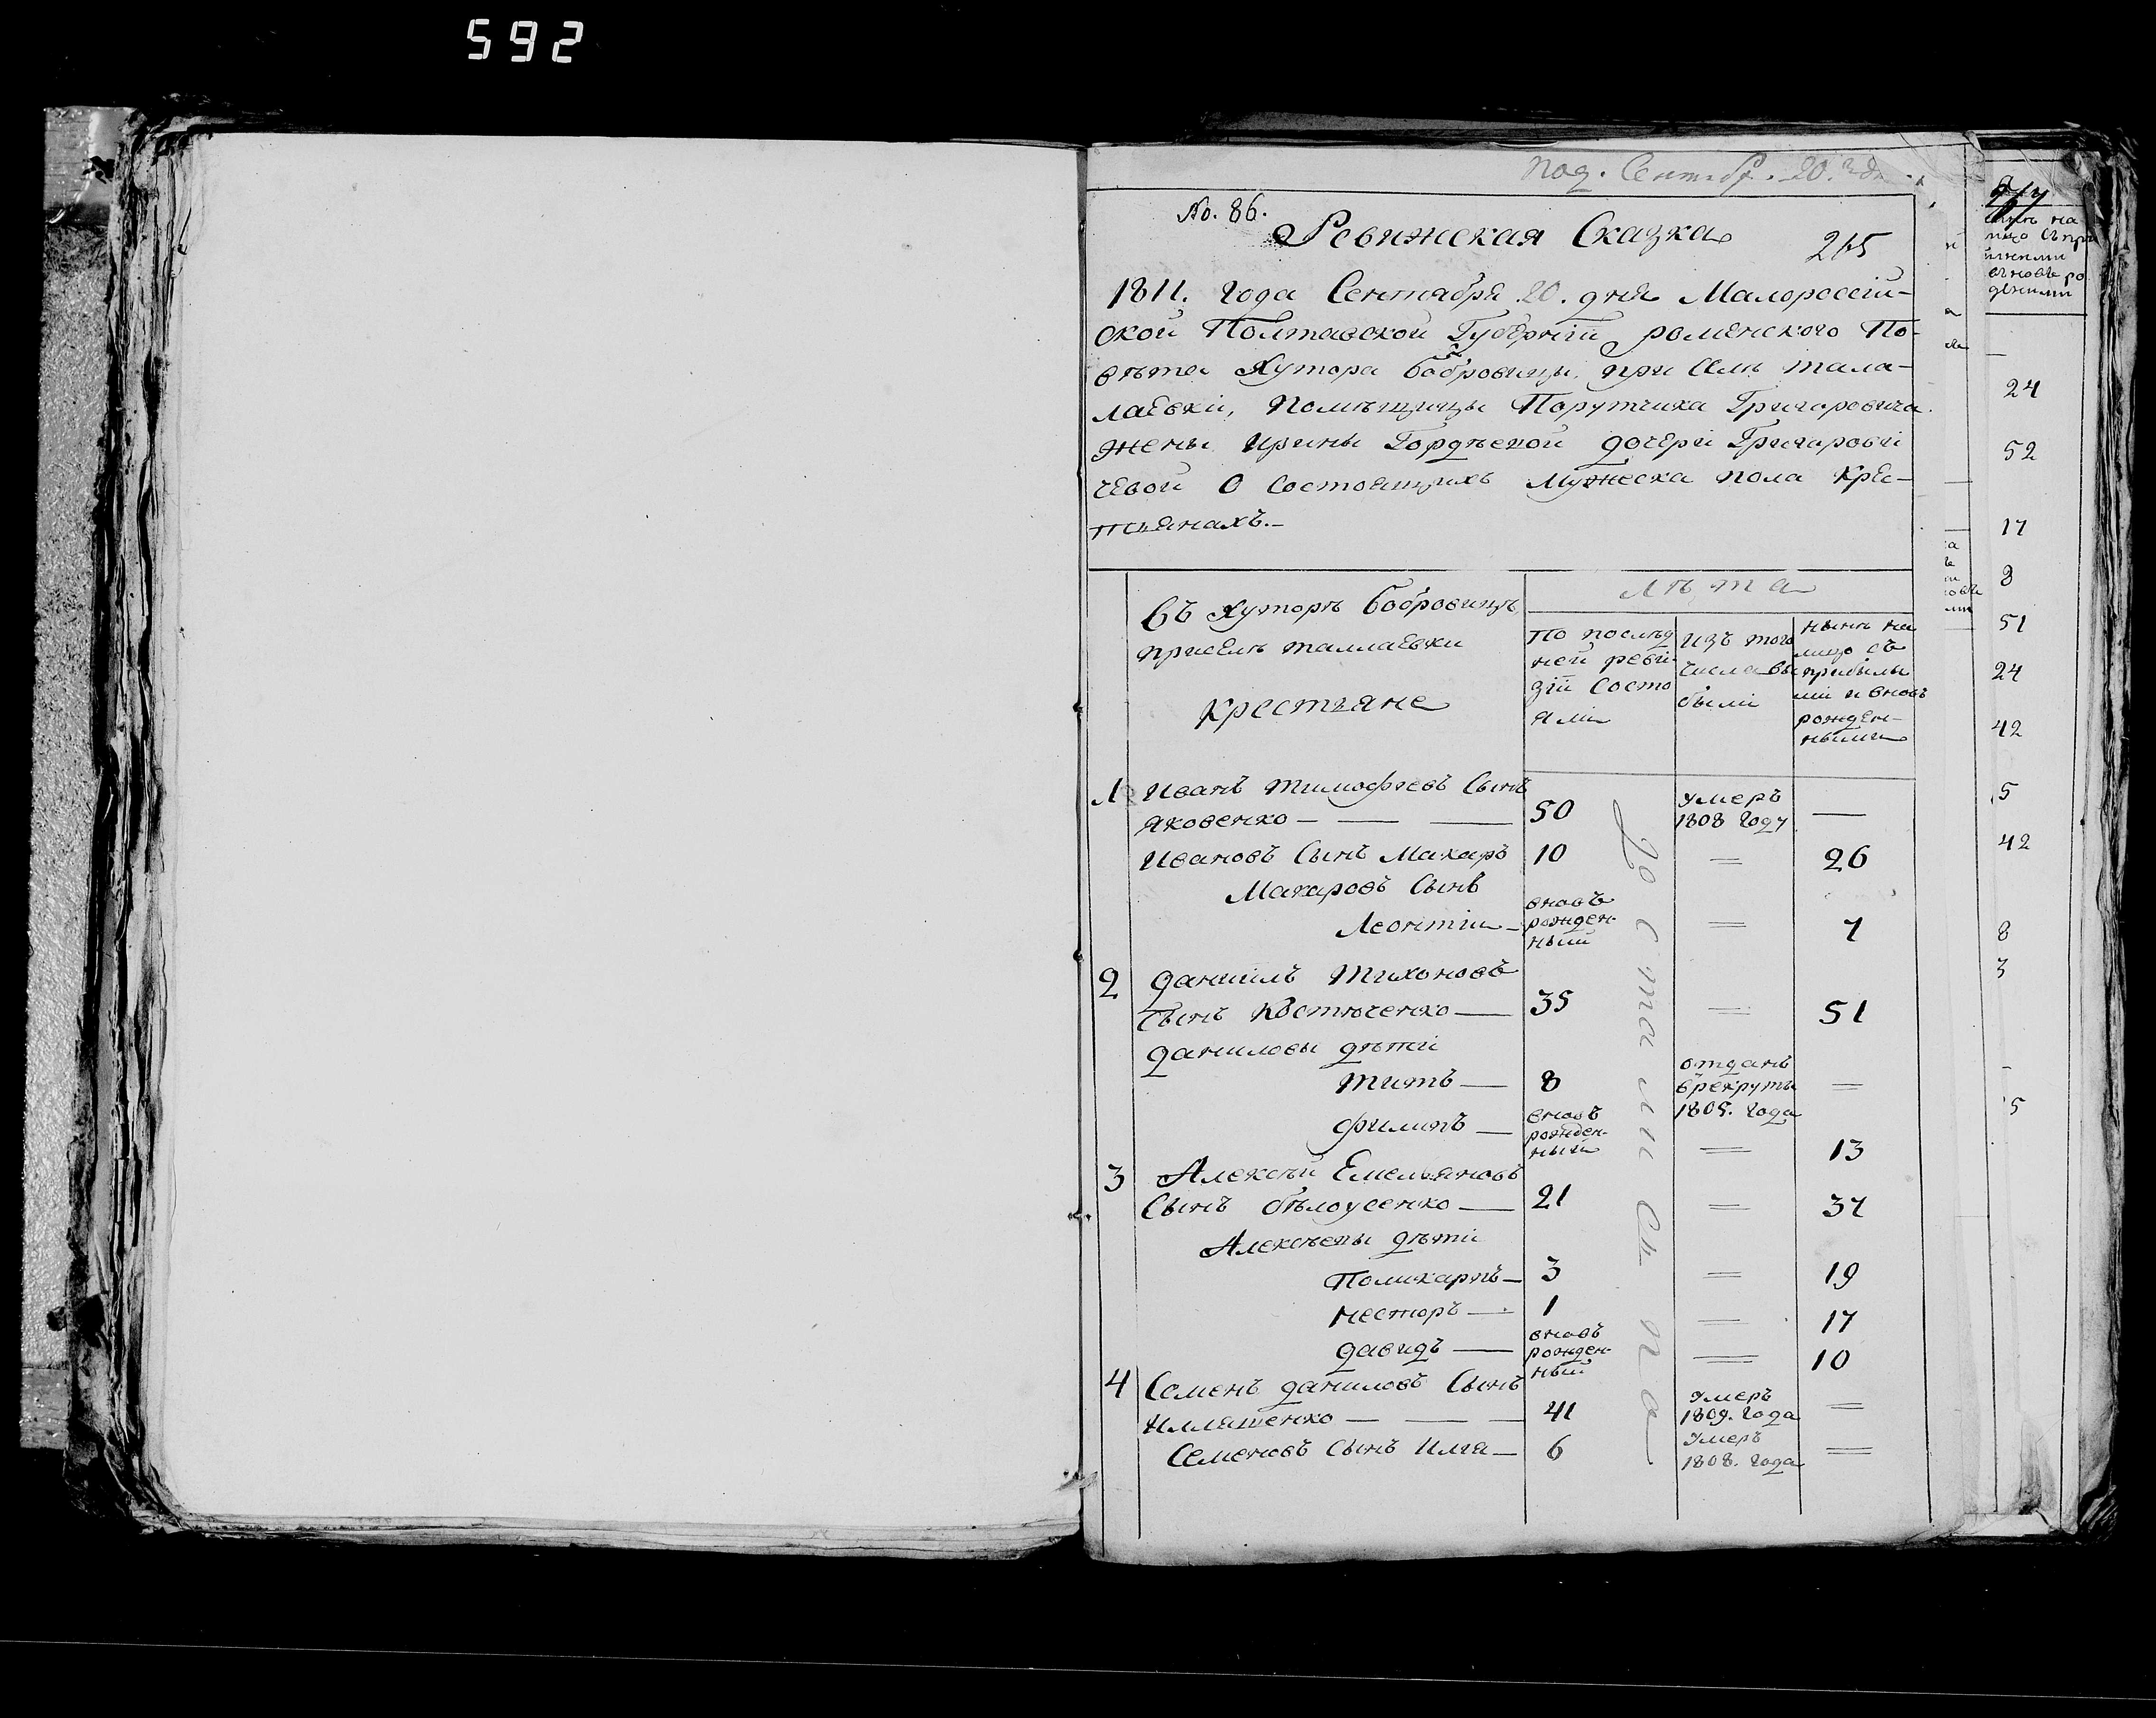 592
под. Сентябр. 20. дн.
No. 86.
Ревижская Сказка
265
1811. года Сентября 20. дня Малороссій-
ской Полтавской Губерніи роменского По-
вѣта Хутора бобровицы при Селѣ тала-
лаевки, Помѣщицы Порутчика Григаровича
жены Ирины Гордѣевой дочери Григарові
чевой О Состоящихъ Мужеска пола Кре-
стьянахъ.—
въ хуторѣ бобровицѣ
приселѣ таллаевки
Крестьяне
лѣта
по послѣд
ней реві
зіи Состо
яли
изъ того
числа вы
были
нынѣ на
лицо съ
прибылы
ми и вновь
рожден-
ными
1 Иванъ тимофѣевъ Сынъ
яковенко — — — 50 умеръ 1808 году —
Ивановъ Сынъ Макаръ 10 = 26
Макаровъ Сынъ
Леонтіи — вновь рожден- ный = 7
2 даниилъ Тихоновъ
Сынъ Костюченко — 35 = 51
даниловы дѣти
титъ — 8 отданъ врекруты 1805. года =
филипъ — вновь рожден- ный = 13
3 Алексѣй Емельяновъ
Сынъ бѣлоусенко — 21 = 37
Алексѣевы дѣти
Поликарпъ — 3 = 19
несторъ — 1 = 17
давидъ — вновь рожден- ный = 10
4 Семенъ даниловъ Сынъ
Илляшенко — — — 41 умеръ 1809. года =
Семеновъ Сынъ Илья — 6 умеръ 1808. года =
нынѣ на
лицо съпри
вновь ро
деними
—
24
52
17
8
51
24
42
5
42
8
3
5